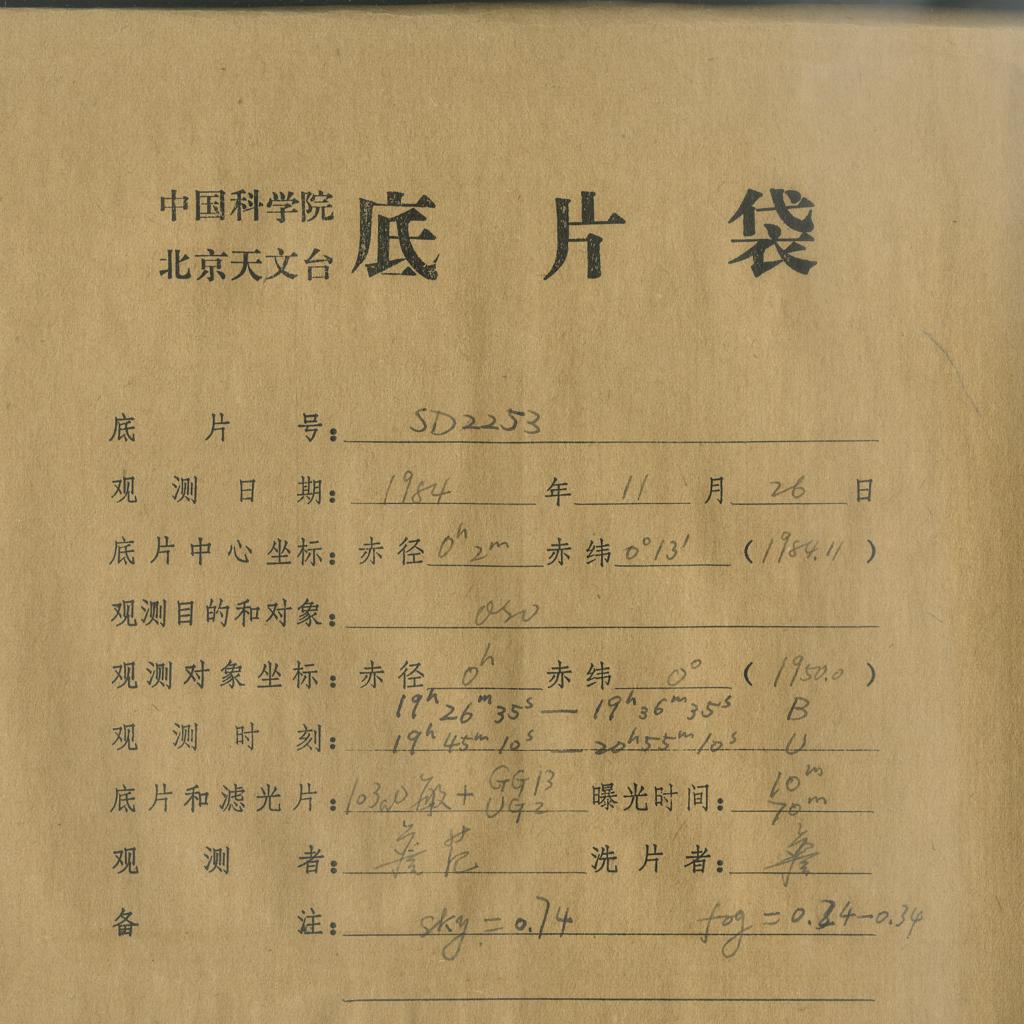 中国科学院
北京天文台
底片袋
底片号: SD2253
观测日期: 1984 年 11 月 26 日
底片中心坐标: 赤径 0ʰ 2ᵐ 赤纬 0°13′ (1984.11)
观测目的和对象: QSO
观测对象坐标: 赤径 0ʰ 赤纬 0° (1950.0)
19ʰ 26ᵐ 35ˢ — 19ʰ 36ᵐ 35ˢ B
观测时刻: 19ʰ 45ᵐ 10ˢ — 20ʰ 55ᵐ 10ˢ U
GG13 10ᵐ
底片和滤光片: 103aO 敏+ UG2 曝光时间: 70ᵐ
观测者: 范 洗片者:
备注: sky = 0.74 fog = 0.24-0.34